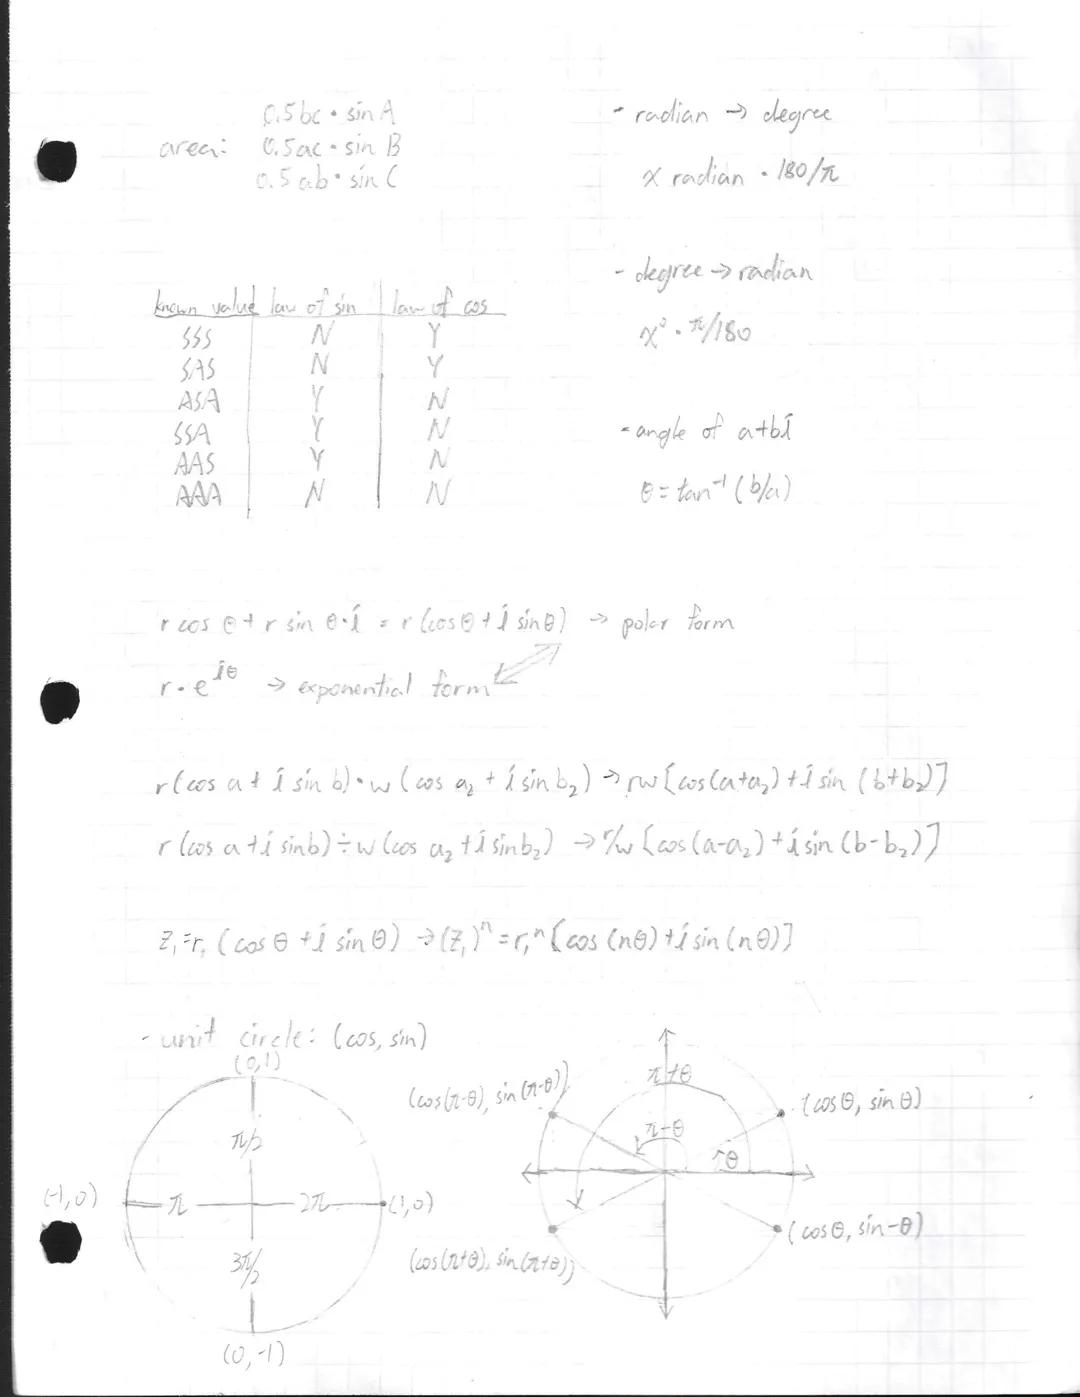 0.5bc • sin A
area: 0.5ac • sin B
0.5ab • sin C
- radian → degree
x radian • 180/π
- degree → radian
x° • π/180
- angle of a+bi
θ = tan⁻¹ (b/a)
known value law of sin law of cos
SSS N Y
SAS N Y
ASA Y N
SSA Y N
AAS Y N
AAA N N
r cos θ + r sin θ•i = r (cos θ + i sin θ) → polar form
r•e^iθ → exponential form
r(cos a + i sin b)•w (cos a₂ + i sin b₂) → rw [cos(a+a₂) + i sin (b+b₂)]
r (cos a + i sin b) ÷ w (cos a₂ + i sin b₂) → r/w [cos(a-a₂) + i sin (b-b₂)]
Z₁=r₁ (cos θ + i sin θ) → (Z₁)ⁿ = r₁ⁿ [cos (nθ) + i sin (nθ)]
- unit circle: (cos, sin)
(0,1)
π/2
(-1,0) π 2π (1,0)
3π/2
(0,-1)
π+θ
(cos(π-θ), sin(π-θ))
(cosθ, sinθ)
π-θ
θ
(cosθ, sin-θ)
(cos(π+θ), sin(π+θ))